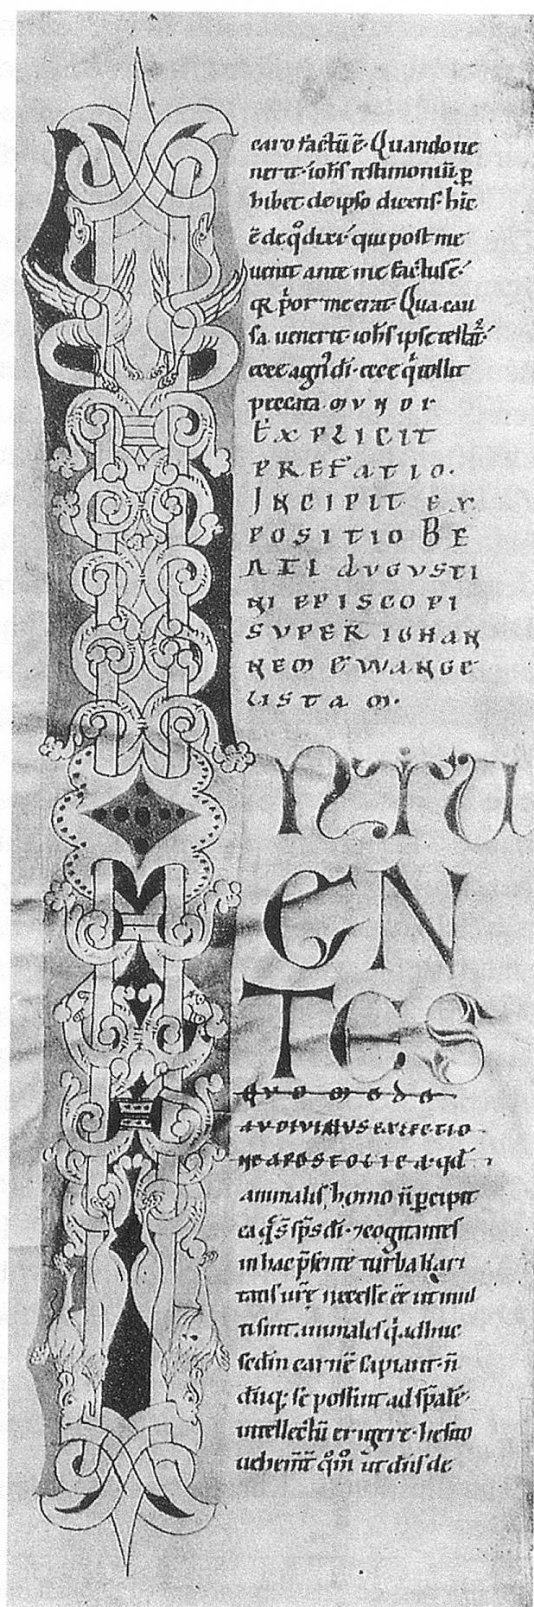 caro factū ē· Quando ue
nerit· ioħs testimoniū p̱
hibet de ipso dicens· hic
ē de qͦ dixi· qui post me
uenit ante me factus ē·
qꝛ p̓or me erat· Qua cau
sa uenerit· ioħs ipse
ecce agn̓ dī· ecce q̓ tollit
peccata MVNDI
EXPLICIT
PREFATIO·
INCIPIT EX
POSITIO BE
ATI AVGVSTI
NI EPISCOPI
SVPER IOHAN
NEM EWANGE
LISTAM·
INTU
EN
TES
QVOMODO
AVDIVIMVS EX LECTIO
NE APOSTOLICA· qđ
animalis homo n̄ p̱cipit
ea q̄ s̄ sp̄s dī· ⁊ cogitantes
in hac p̄sente turba kari
tatis ur̄ę necesse ēē ut mul
ti sint animales q̓ adhuc
sedm carnē sapiant· n̄
dūq; se possint ad sp̄alē·
intellectū erigere· hesito
uehem̄t̄ qͦm̄ ut dn̄s de